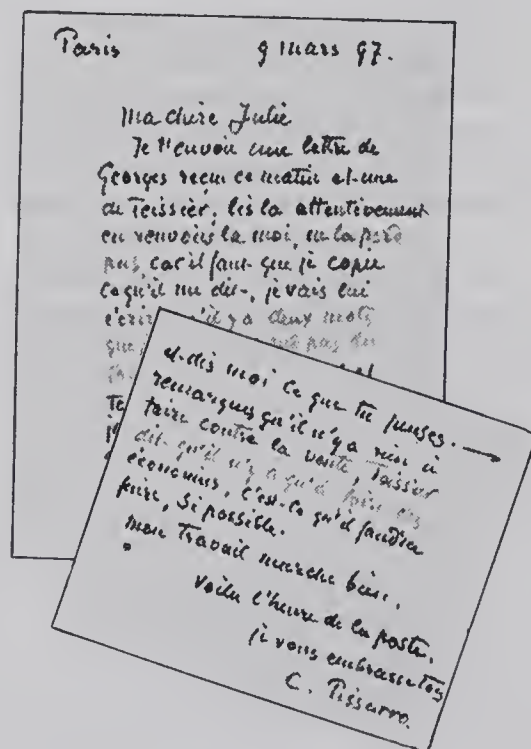 Paris 9 mars 97.
Ma chère Julie
Je t'envoie une lettre de
Georges reçu ce matin et une
de Teissier, lis la attentivement
en renvois la moi, ne la perd
pas, car il faut que je copie
ce qu'il me dit, je vais lui
écrire qu'il y a deux mots
que pas
et dis moi ce que tu penses.
remarques qu'il n'y a rien à
faire contre la vente, Teissier
dit qu'il n'y a qu'à faire des
économies, c'est ce qu'il faudra
faire, si possible.
mon travail marche bien.
voila l'heure de la poste.
je vous embrasse tous
C. Pissarro.